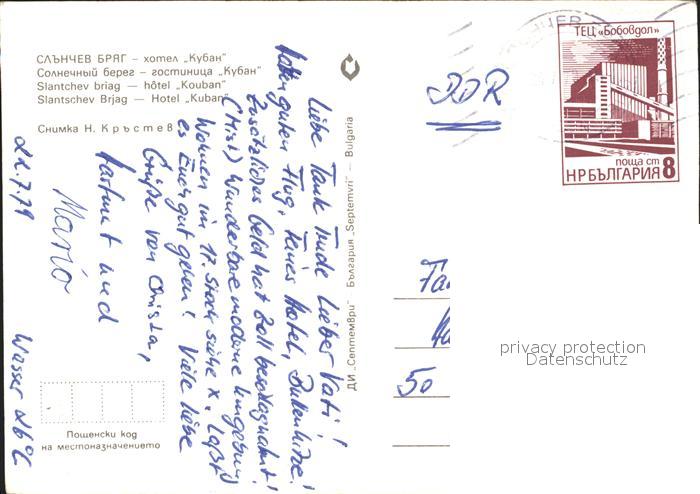 СЛЪНЧЕВ БРЯГ – хотел „Кубан"
Солнечный берег – гостиница „Кубан"
Slantchev briag — hôtel „Kouban"
Slantschev Brjag — Hotel „Kuban
Снимка Н. Кръстев
Liebe Tante Trude lieber Vati!
Hatten guten Flug, feines Hotel, Bullenhitze!
Zusätzliches Geld hat Zoll beschlagnahmt!
(Mist) Wunderbare moderne Umgebung
Wohnen im 17. Stock siehe x. Laßt
es Euch gut gehen! Viele liebe
Grüße von Christa,
Hartmut und
Mario
22.7.79
Wasser 26°C
Пощенски код
на местоназначението
ДИ „Септември" България „Septemvri" — Bulgaria
DDR
ТЕЦ „Бобовдол"
поща ст
НР БЪЛГАРИЯ 8
50
privacy protection
Datenschutz